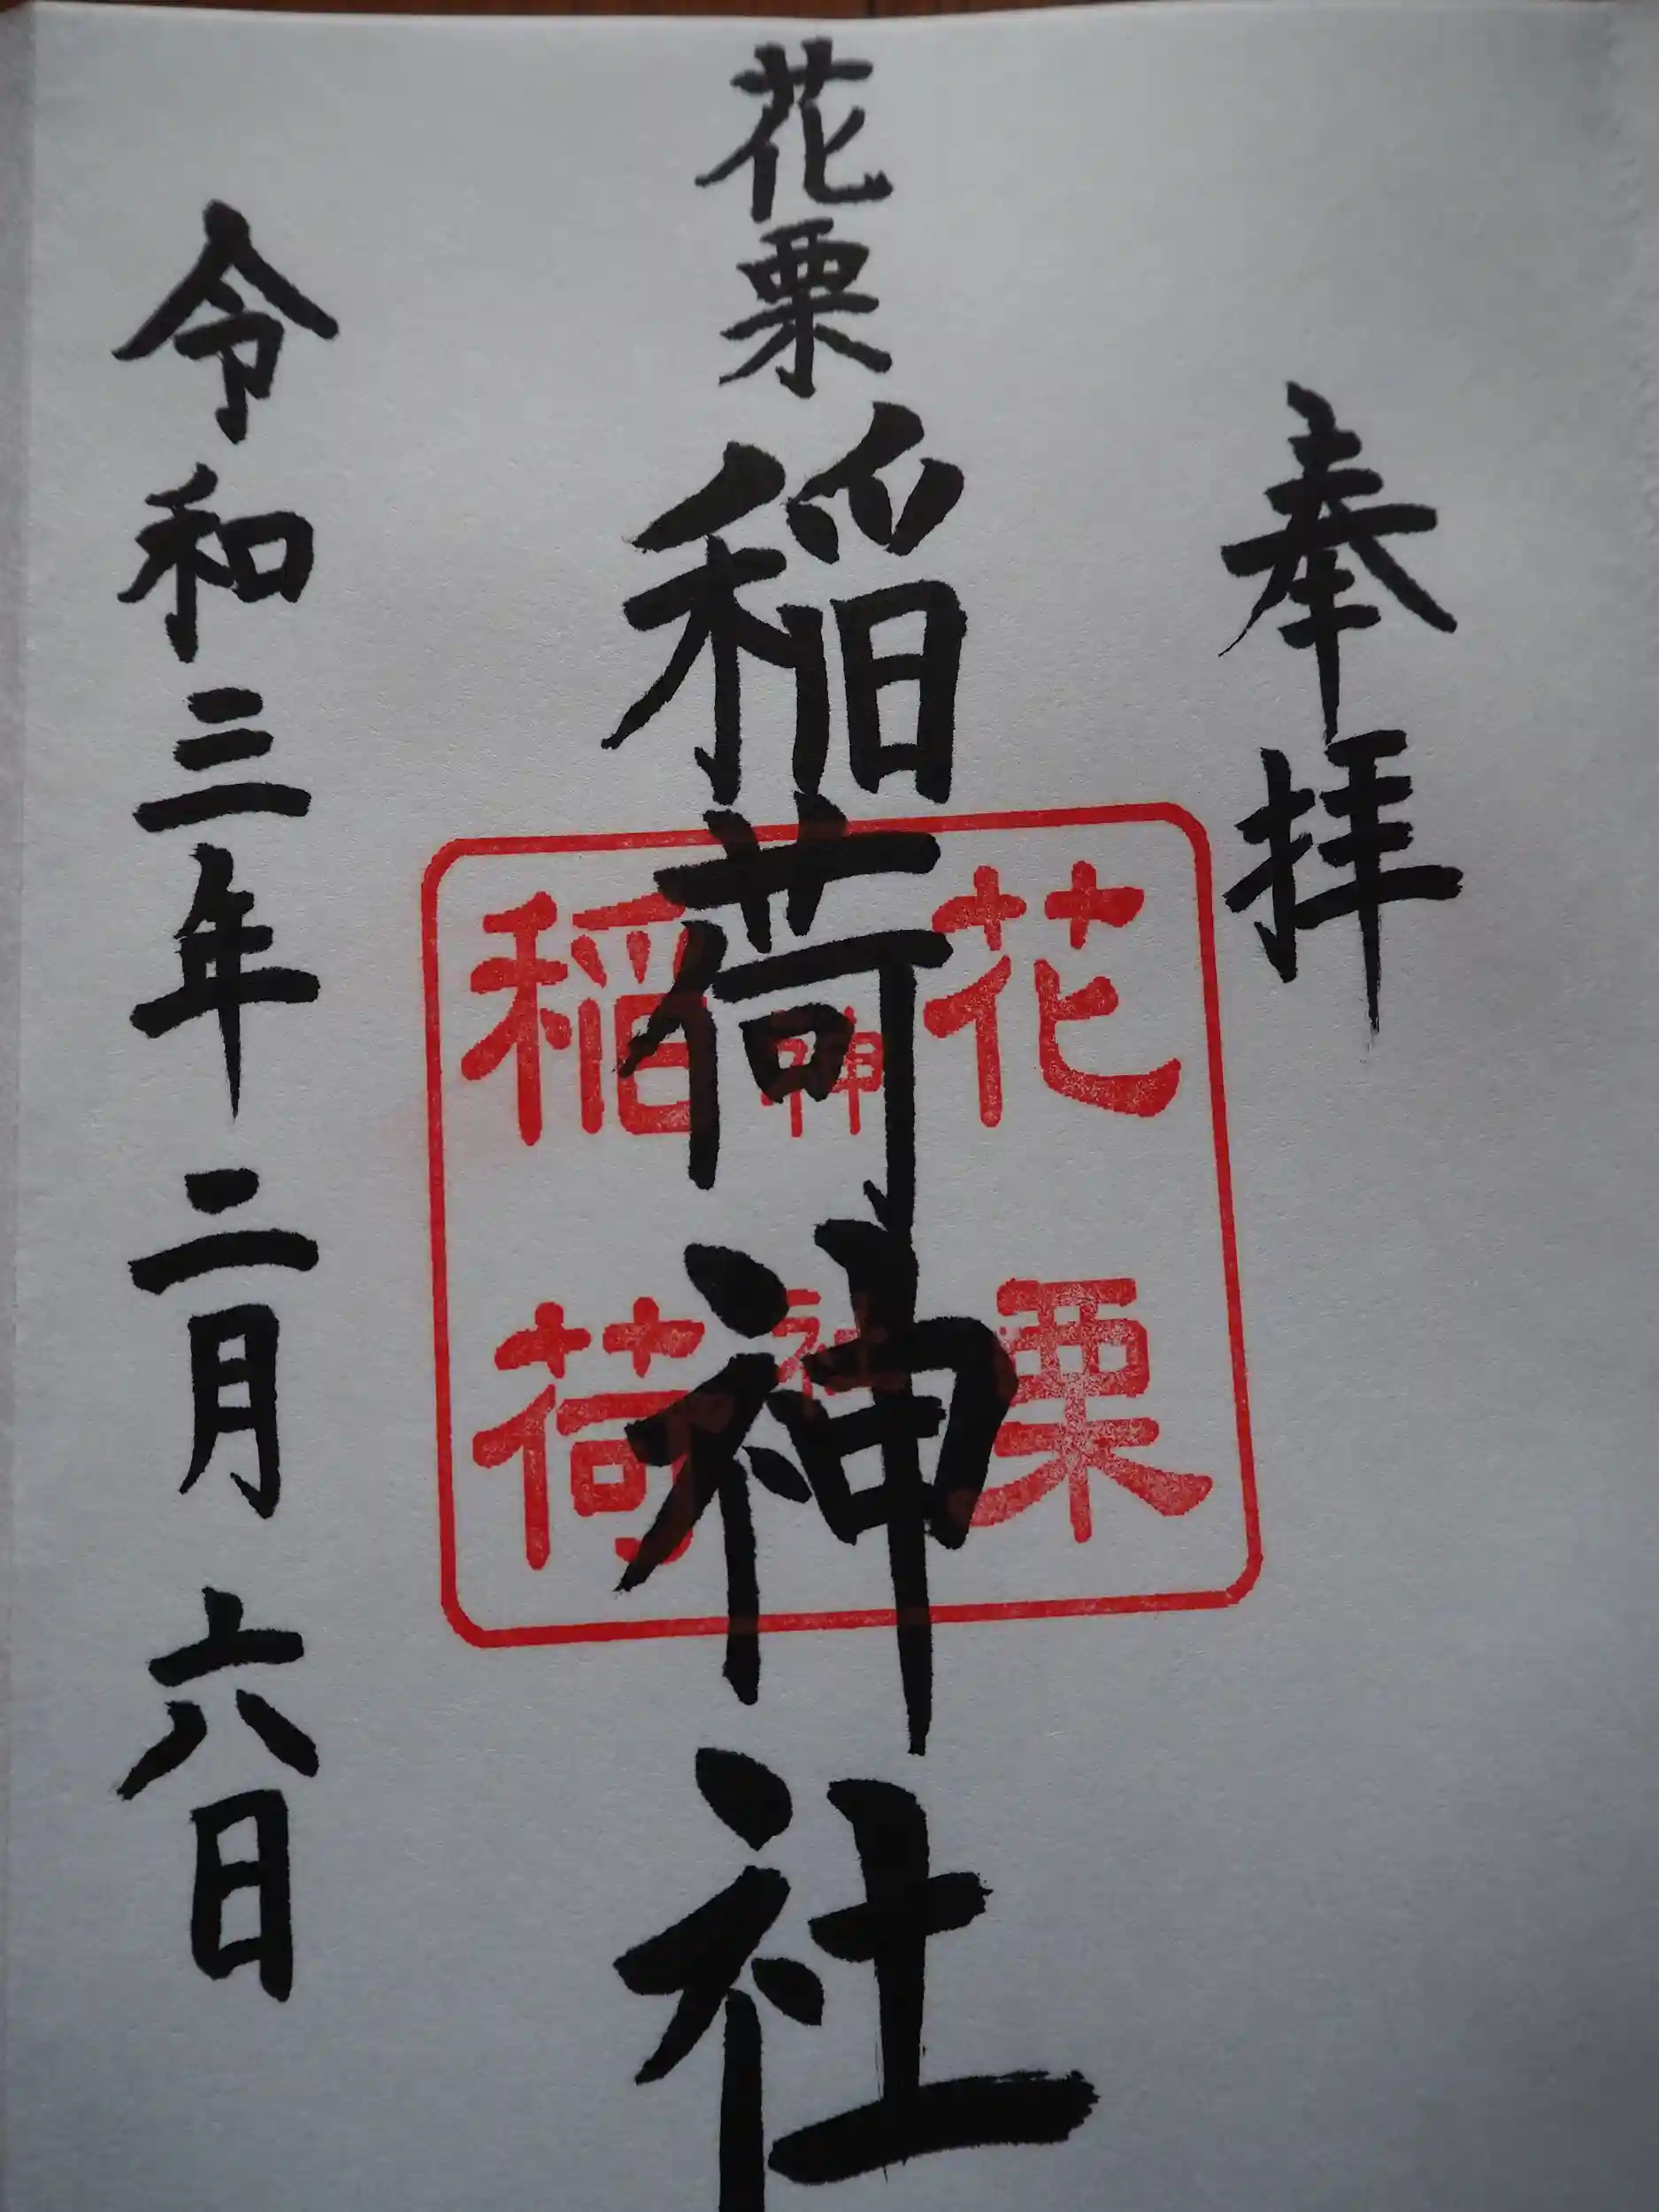 奉拝
花栗稲荷神社
花栗
神社
稲荷
令和三年二月六日